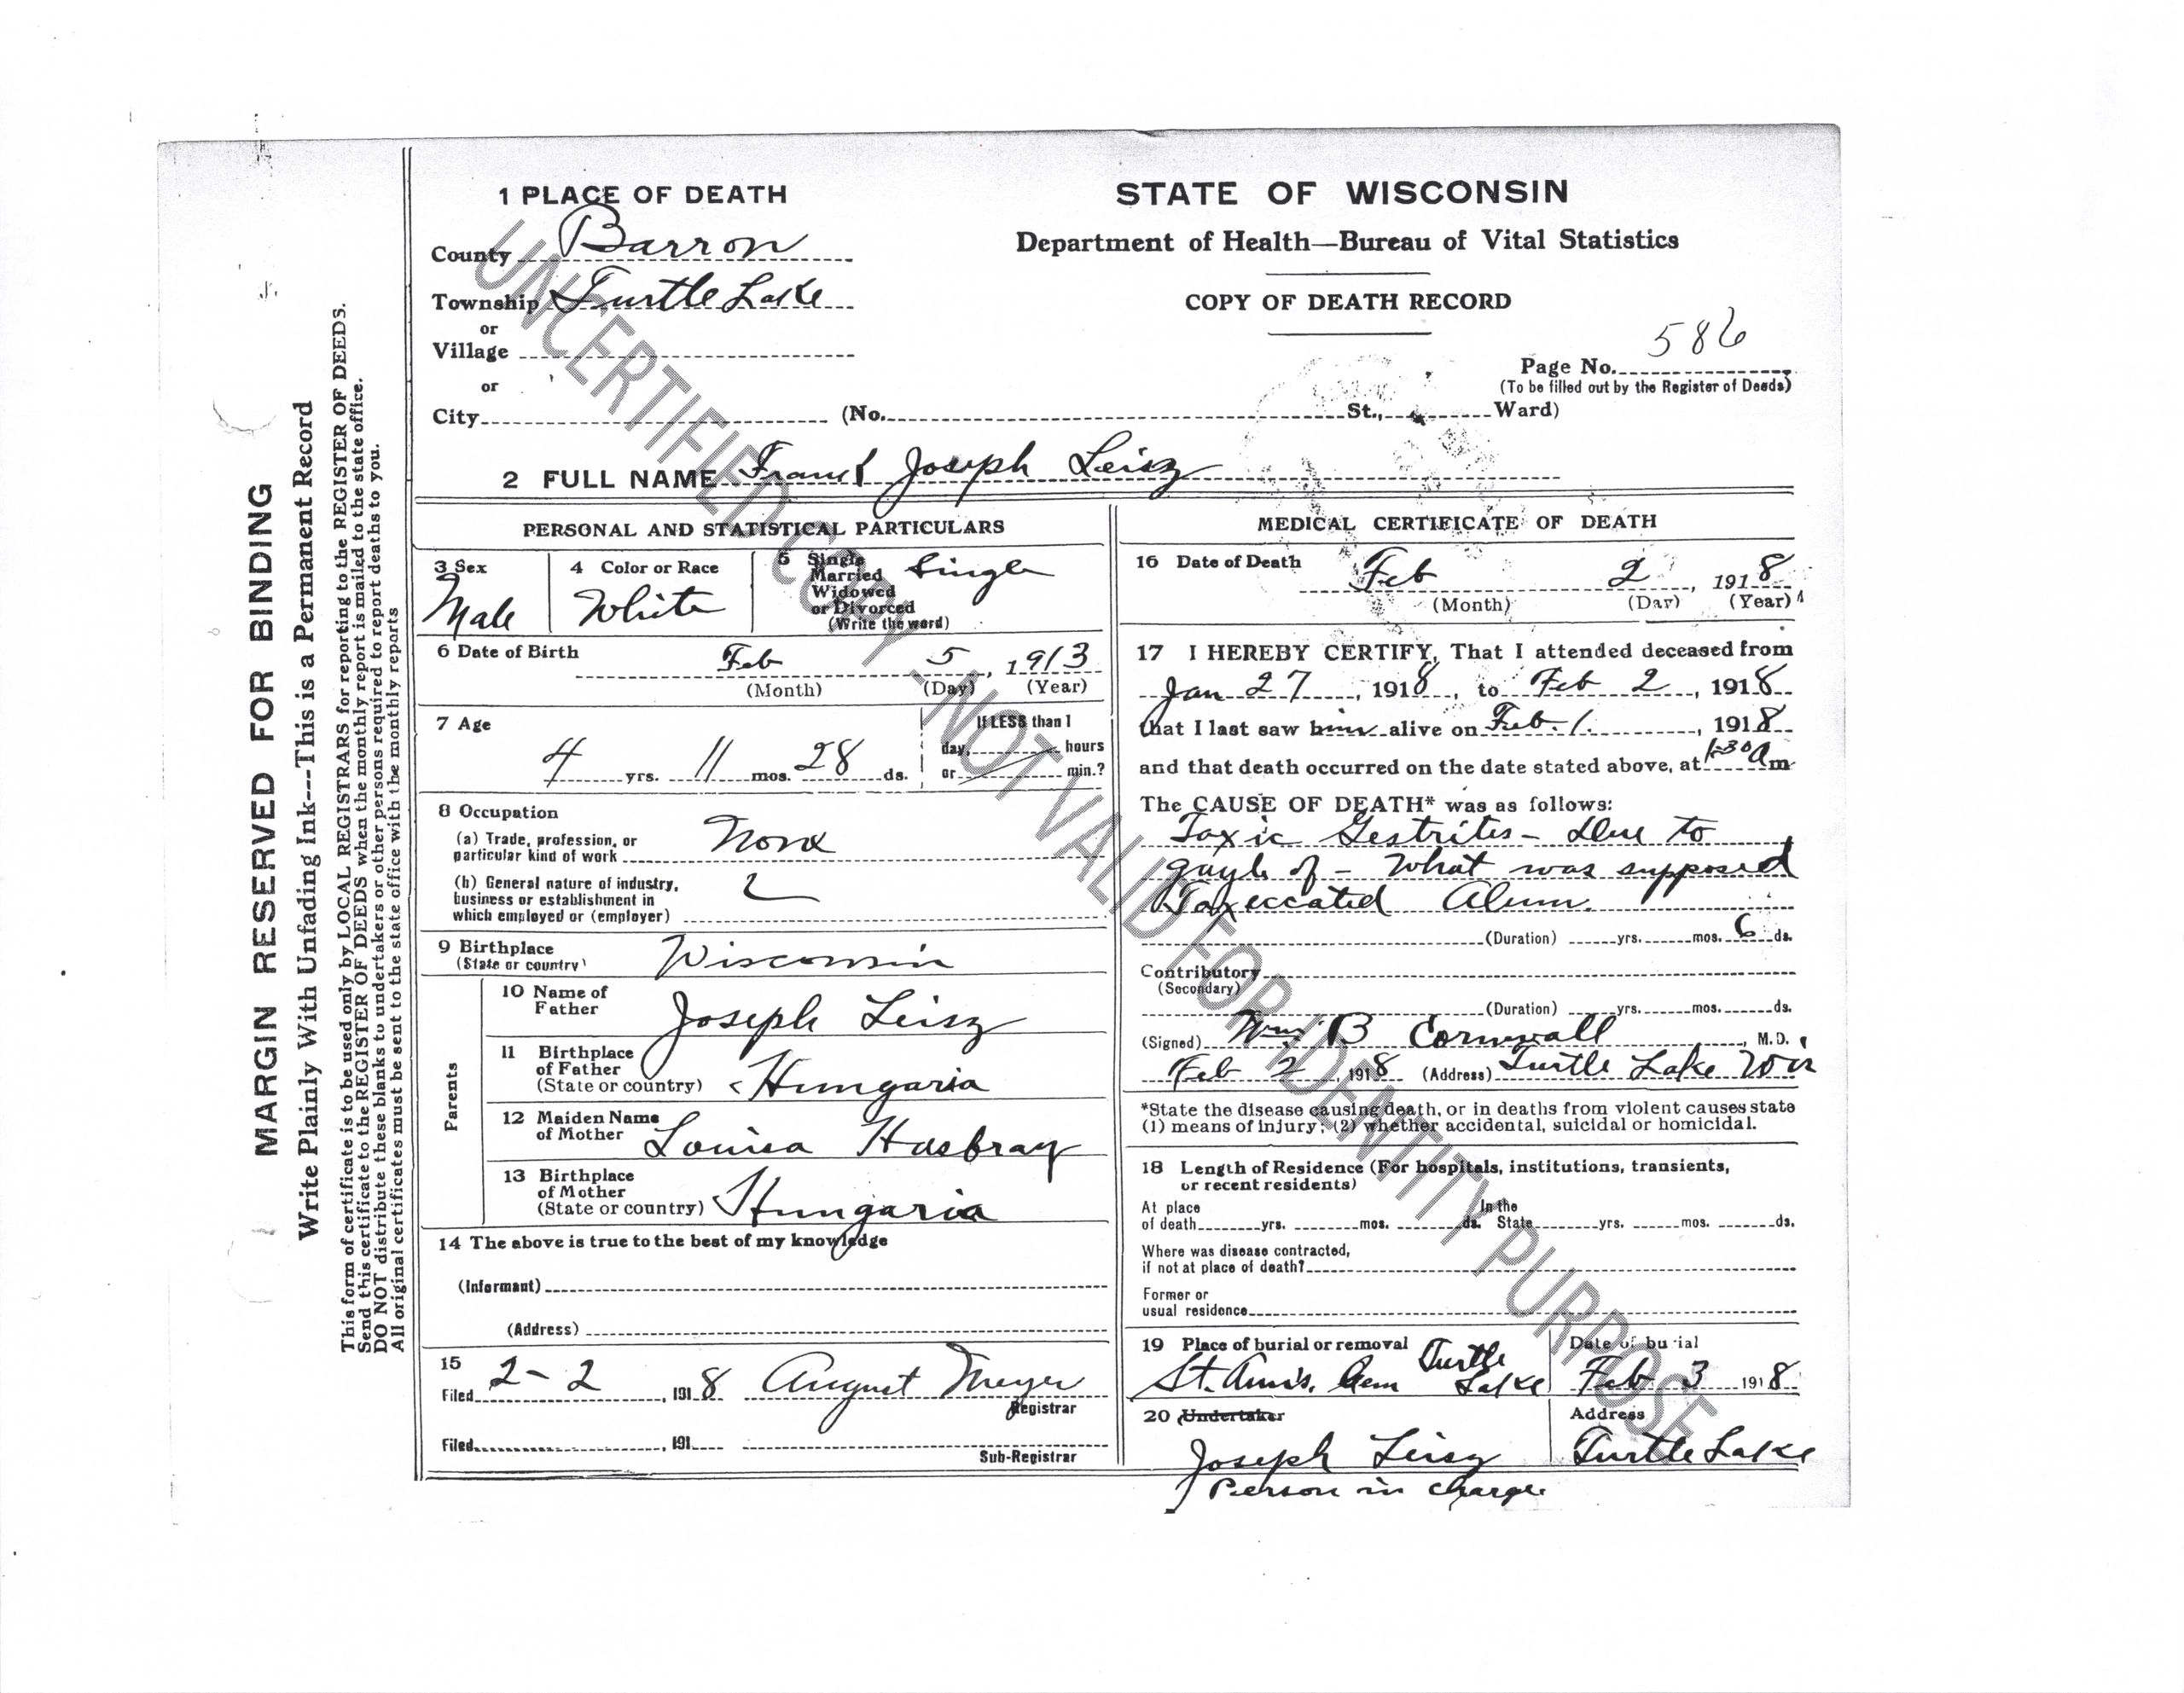 MARGIN RESERVED FOR BINDING
Write Plainly With Unfading Ink---This is a Permanent Record
This form of certificate is to be used only by LOCAL REGISTRARS for reporting to the REGISTER OF DEEDS.
Send this certificate to the REGISTER OF DEEDS when the monthly report is mailed to the state office.
DO NOT distribute these blanks to undertakers or other persons required to report deaths to you.
All original certificates must be sent to the state office with the monthly reports
UNCERTIFIED COPY - NOT VALID FOR IDENTITY PURPOSE
1 PLACE OF DEATH
County Barron
Township Turtle Lake
or
Village
or
City (No. St., Ward)
STATE OF WISCONSIN
Department of Health—Bureau of Vital Statistics
COPY OF DEATH RECORD
586
Page No.
(To be filled out by the Register of Deeds)
2 FULL NAME Frank Joseph Leisz
PERSONAL AND STATISTICAL PARTICULARS
3 Sex
Male
4 Color or Race
White
5 Single
Married
Widowed
or Divorced
(Write the word)
Single
6 Date of Birth
Feb 5, 1913
(Month) (Day) (Year)
7 Age
4 yrs. 11 mos. 28 ds.
If LESS than 1
day, hours
or min.?
8 Occupation
(a) Trade, profession, or
particular kind of work None
(b) General nature of industry,
business or establishment in
which employed or (employer)
9 Birthplace
(State or country) Wisconsin
Parents
10 Name of
Father Joseph Leisz
11 Birthplace
of Father
(State or country) Hungaria
12 Maiden Name
of Mother Louisa Hasbray
13 Birthplace
of Mother
(State or country) Hungaria
14 The above is true to the best of my knowledge
(Informant)
(Address)
15
Filed 2-2, 1918 August Meyer
Registrar
Filed, 191
Sub-Registrar
MEDICAL CERTIFICATE OF DEATH
16 Date of Death Feb 2, 1918
(Month) (Day) (Year)
17 I HEREBY CERTIFY, That I attended deceased from
Jan 27, 1918, to Feb 2, 1918
that I last saw him alive on Feb. 1, 1918
and that death occurred on the date stated above, at 1-30 a m
The CAUSE OF DEATH* was as follows:
Toxic Gestrites - Due to
of - What was supposed
Alum.
(Duration) yrs. mos. 6 ds.
Contributory
(Secondary)
(Duration) yrs. mos. ds.
(Signed) Wm. B Cornwall, M.D.
Feb 2, 1918 (Address) Turtle Lake Wis
*State the disease causing death, or in deaths from violent causes state
(1) means of injury; (2) whether accidental, suicidal or homicidal.
18 Length of Residence (For hospitals, institutions, transients,
or recent residents)
At place
of death yrs. mos. ds.
In the
State yrs. mos. ds.
Where was disease contracted,
if not at place of death?
Former or
usual residence
19 Place of burial or removal
St. Ann's. Cem Turtle Lake
Date of burial
Feb 3 1918
20 Undertaker
Joseph Leisz
Person in charge
Address
Turtle Lake